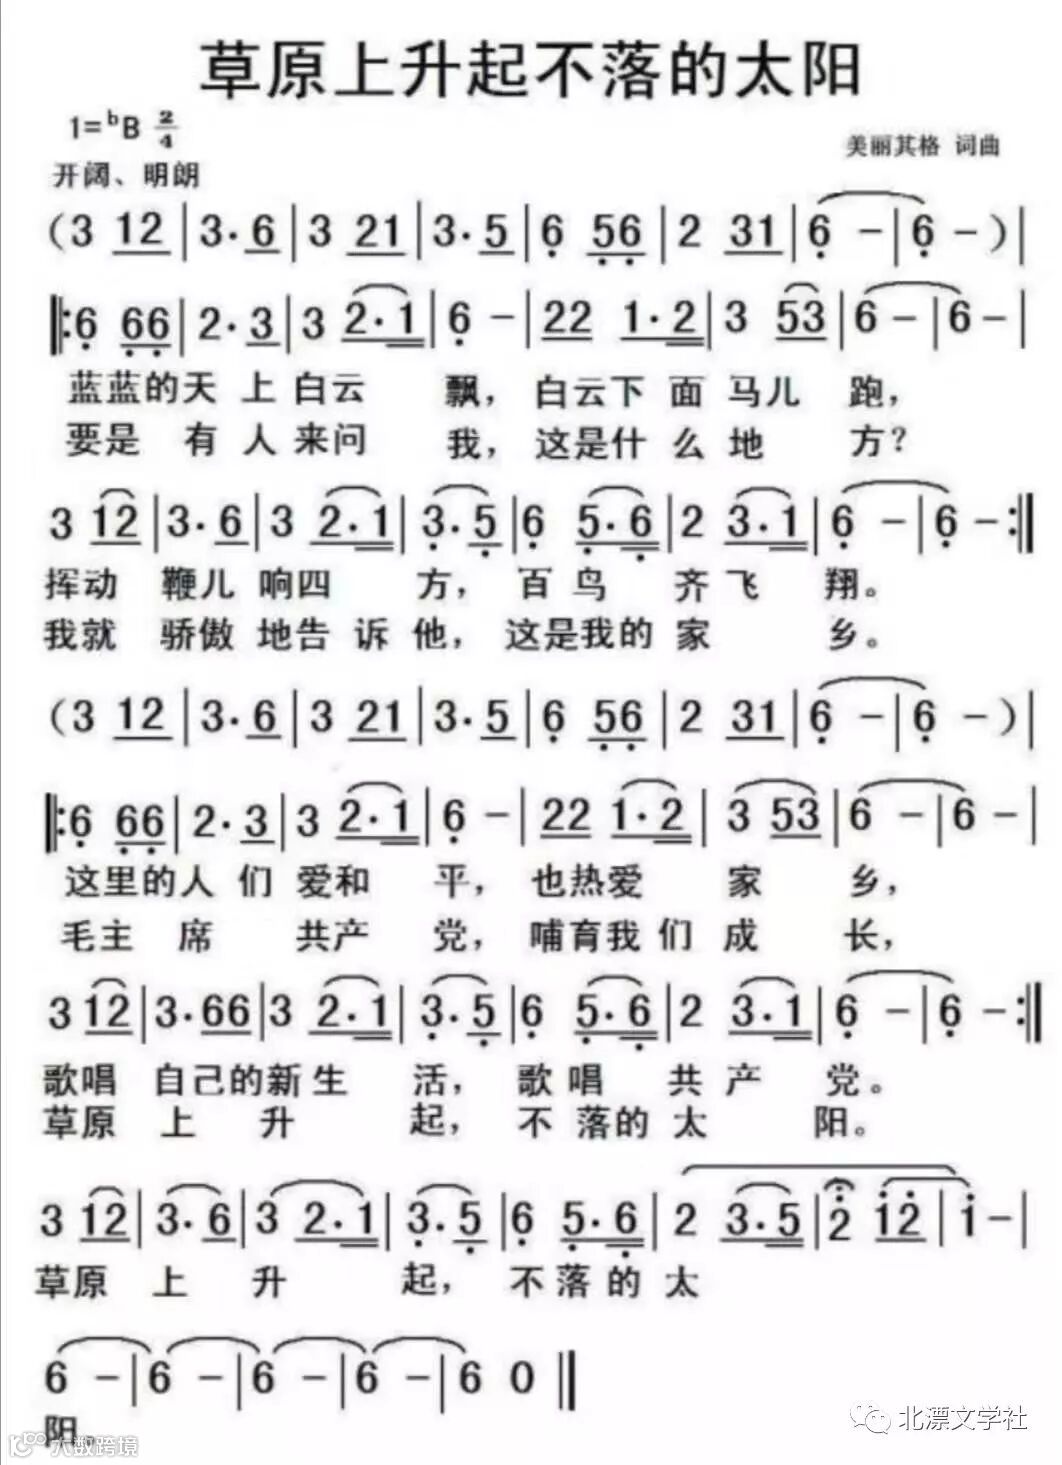 草原上升起不落的太阳
1=ᵇB 2/4
美丽其格 词曲
开阔、明朗
(3 12|3·6|3 21|3·5|6 56|2 31|6 -|6 -)|
‖:6 66|2·3|3 2·1|6 -|22 1·2|3 53|6 -|6 -|
蓝蓝的天 上 白云 飘，白云下 面 马儿 跑，
要是 有 人 来问 我，这是什 么 地 方？
3 12|3·6|3 2·1|3·5|6 5·6|2 3·1|6 -|6 -:‖
挥动 鞭儿 响四 方，百 鸟 齐 飞 翔。
我就 骄傲 地告 诉 他，这是我的 家 乡。
(3 12|3·6|3 21|3·5|6 56|2 31|6 -|6 -)|
‖:6 66|2·3|3 2·1|6 -|22 1·2|3 53|6 -|6 -|
这里的人 们 爱和 平，也热爱 家 乡，
毛主 席 共产 党，哺育我 们 成 长，
3 12|3·66|3 2·1|3·5|6 5·6|2 3·1|6 -|6 -:‖
歌唱 自己的新 生 活，歌 唱 共 产 党。
草原 上 升 起，不 落的 太 阳。
3 12|3·6|3 2·1|3·5|6 5·6|2 3·5|2 12|1 -|
草原 上 升 起，不 落 的 太
6 -|6 -|6 -|6 -|6 0‖
阳。
北漂文学社
大数跨境